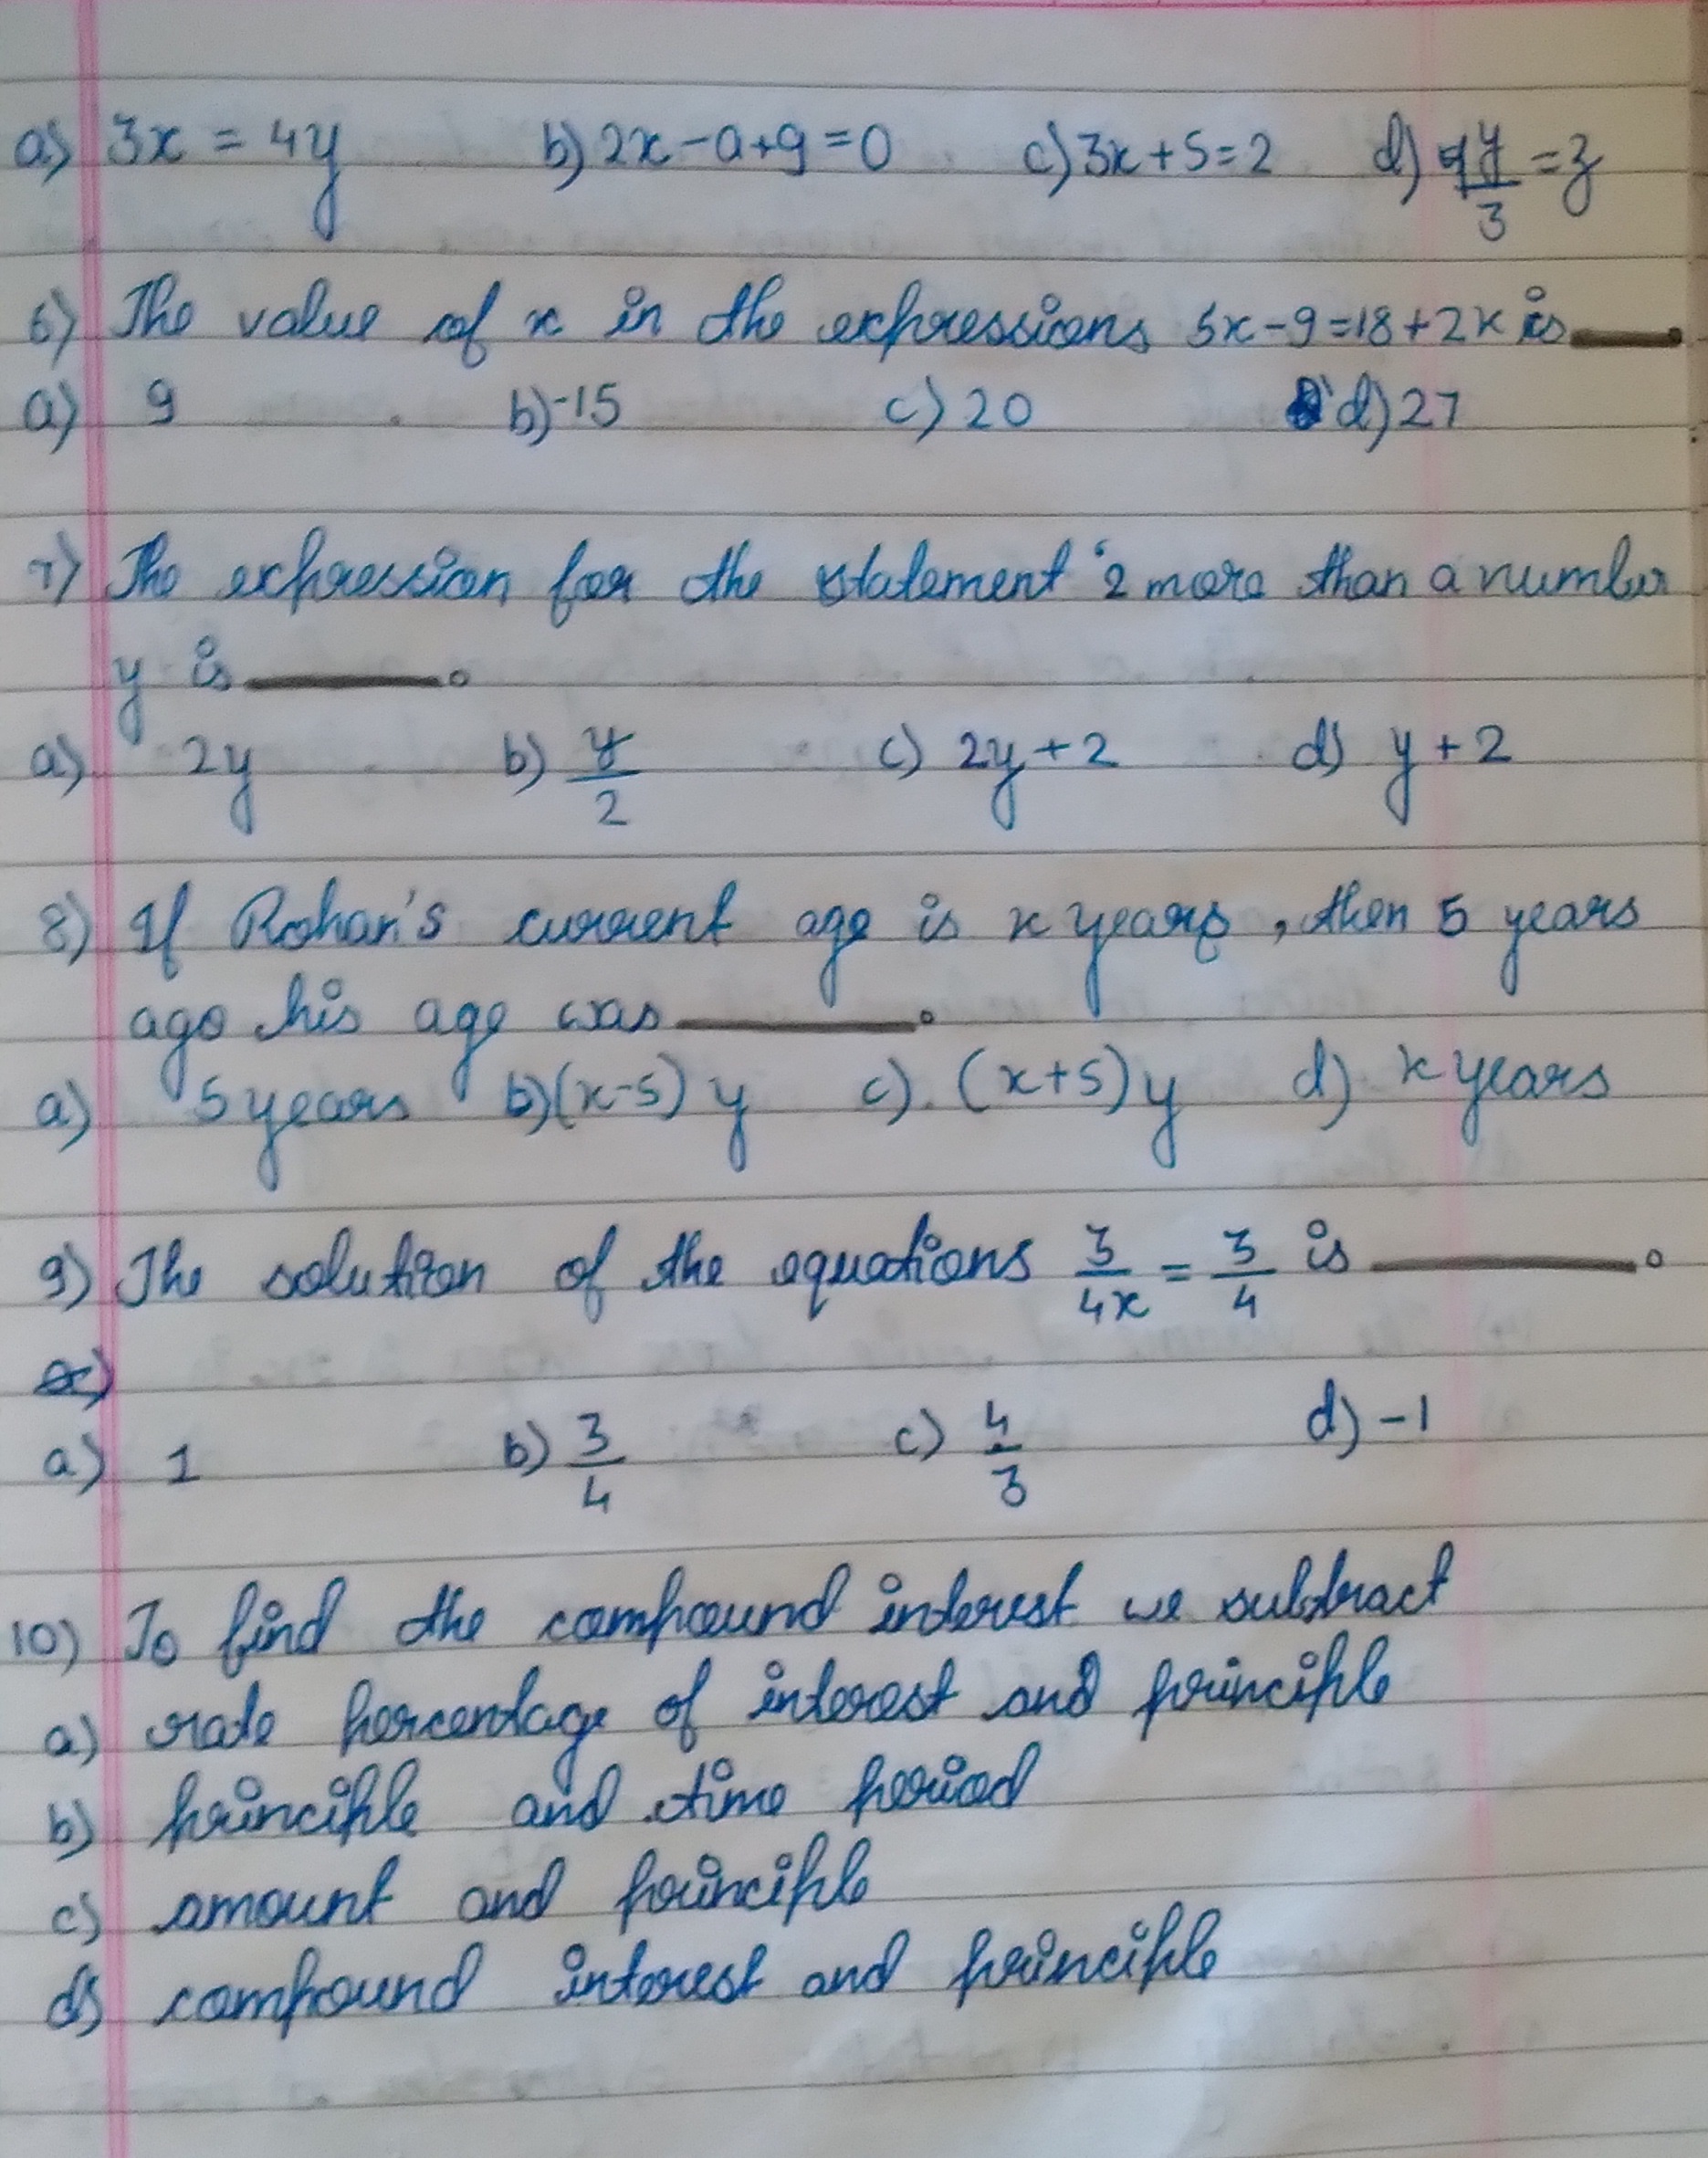 a) 3x = 4y b) 2x-a+9=0 c) 3x+5=2 d) 9y/3 = z
6) The value of x in the expressions 5x-9=18+2x is ____.
a) 9 b) -15 c) 20 d) 27
7) The expression for the statement '2 more than a number
y is ____.
a) 2y b) y/2 c) 2y+2 d) y+2
8) If Rohan's current age is x years, then 5 years
ago his age was ____.
a) 5 years b) (x-5) y c). (x+5) y d) x years
9) The solution of the equations 3/4x = 3/4 is ____.
a) 1 b) 3/4 c) 4/3 d) -1
10) To find the compound interest we subtract
a) rate percentage of interest and principle
b) principle and time period
c) amount and principle
d) compound interest and principle